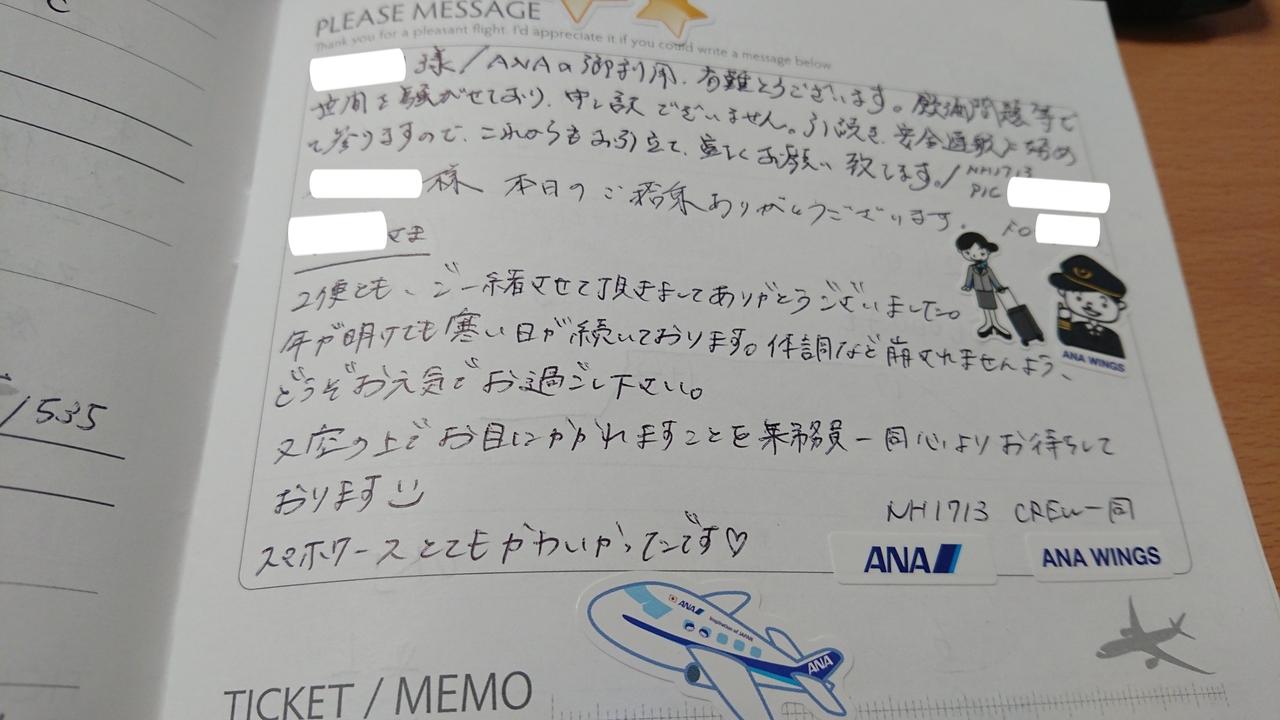 PLEASE MESSAGE
Thank you for a pleasant flight. I'd appreciate it if you could write a message below
様/ANAの御利用、有難とうございます。飲酒問題等で
世間を騒がせており、申し訳ございません。引続き、安全運航に努め
て参りますので、これからもお引立て、宜しくお願い致します。/NH1713
PIC
様 本日のご搭乗ありがとうございます。 FO
さま
2便とも、ご一緒させて頂きましてありがとうございました。
年が明けても寒い日が続いております。体調など崩されませんよう、
どうぞお元気でお過ごし下さい。
又空の上でお目にかかれますことを乗務員一同心よりお待ちして
おります
NH1713 CREW一同
スマホケースとてもかわいかったです♡
ANA
ANA WINGS
ANA WINGS
/535
ANA
Inspiration of JAPAN
ANA
TICKET / MEMO